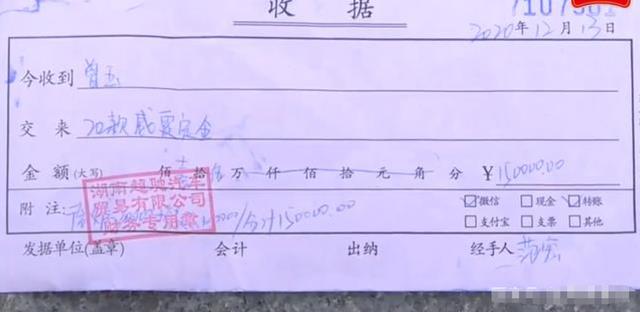 收 据
7107581
2020年12月13日
今收到 曾玉
交来 20款威霆定金
金额(大写) 佰拾万仟佰拾元角分 ¥150000.00
湖南超驰汽车
贸易有限公司
财务专用章
附注: /合计150000.00 微信 现金 转账
支付宝 支票 其他
发据单位(盖章) 会计 出纳 经手人